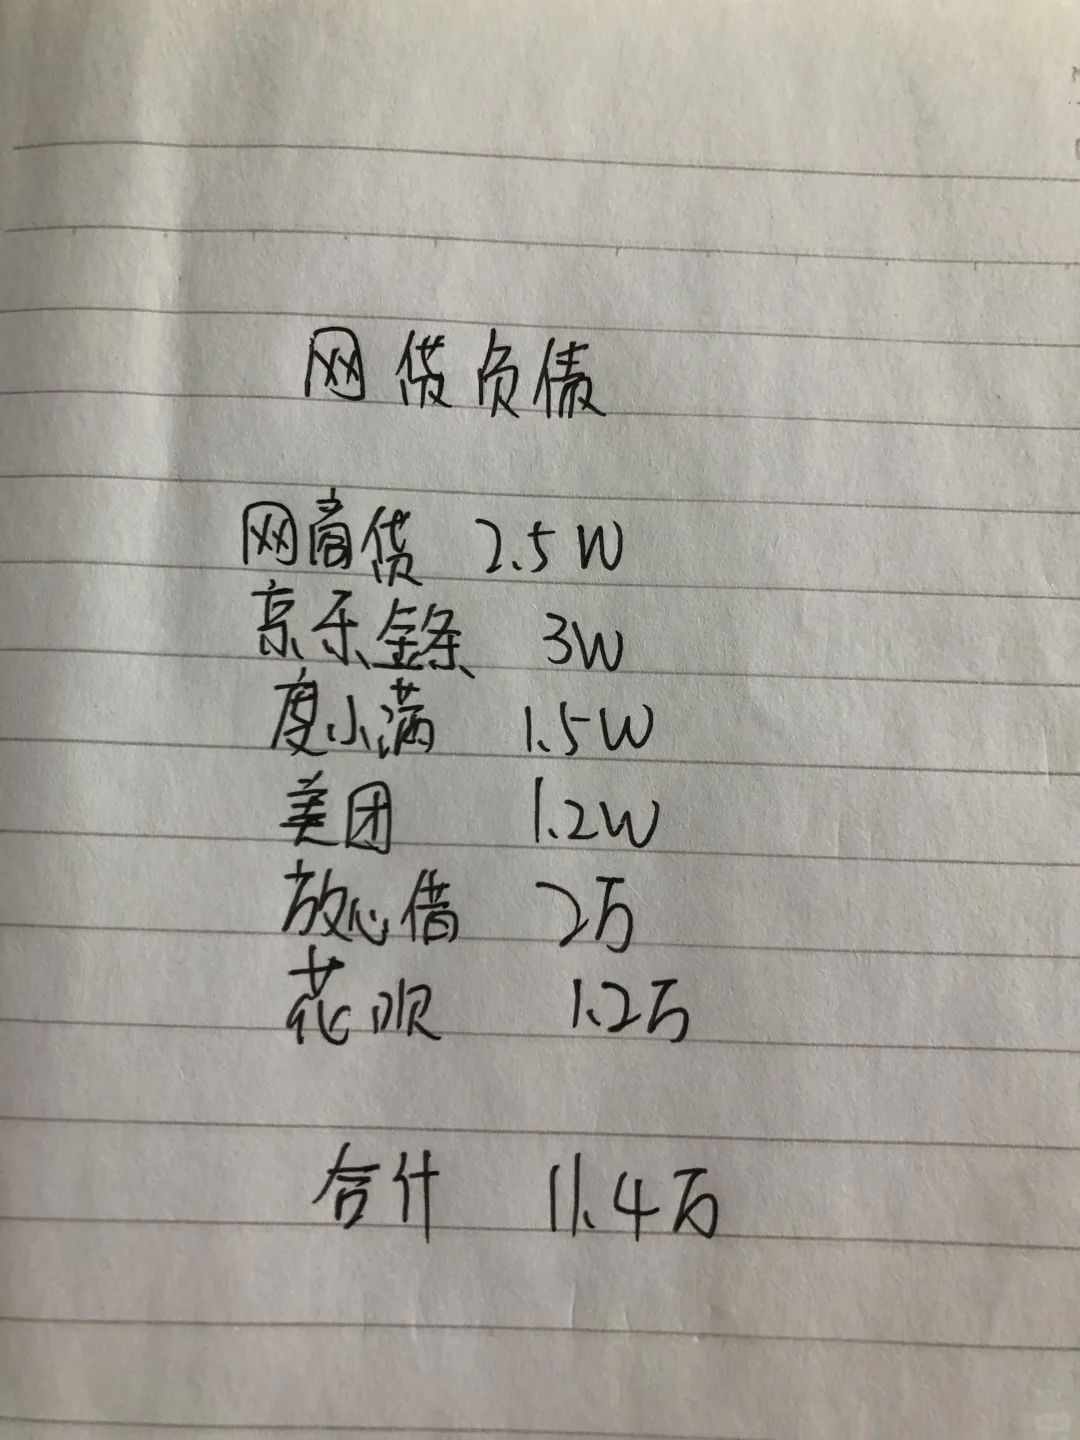 网贷负债
网商贷 2.5W
京东金条 3W
度小满 1.5W
美团 1.2W
放心借 2万
花呗 1.2万
合计 11.4万